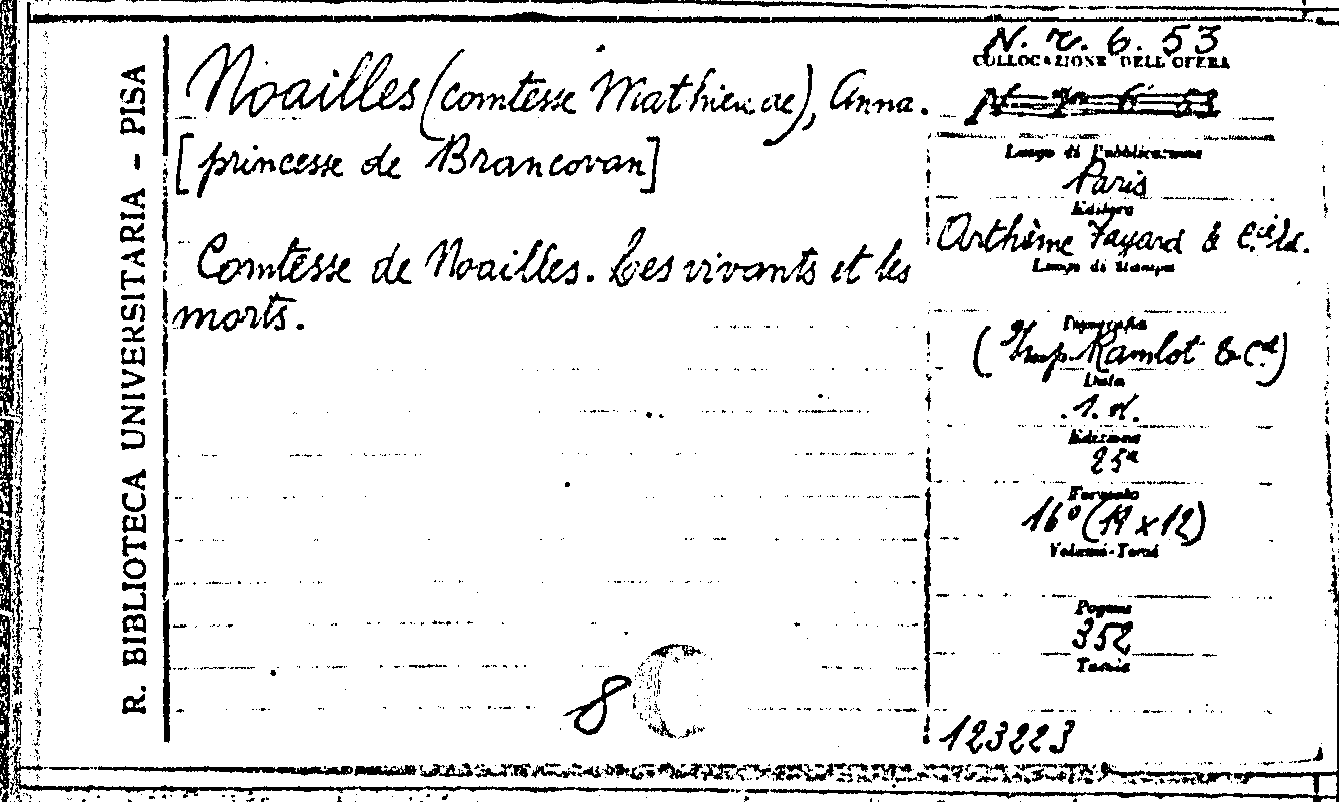 R. BIBLIOTECA UNIVERSITARIA - PISA
Noailles (comtesse Mathieu de), Anna.
[princesse de Brancovan]
Comtesse de Noailles. Les vivants et les
morts.
8
N. r. 6. 53
COLLOCAZIONE DELL'OPERA
Luogo di Pubblicazione
Paris
Editore
Arthème Fayard & C.ie Ed.
Luogo di Stampa
Tipografia
(Imp. Ramlot & C.ie)
Data
s. d.
Edizione
25a
Formato
16° (19 x 12)
Volumi-Tomi
Pagine
352
Tavole
123223